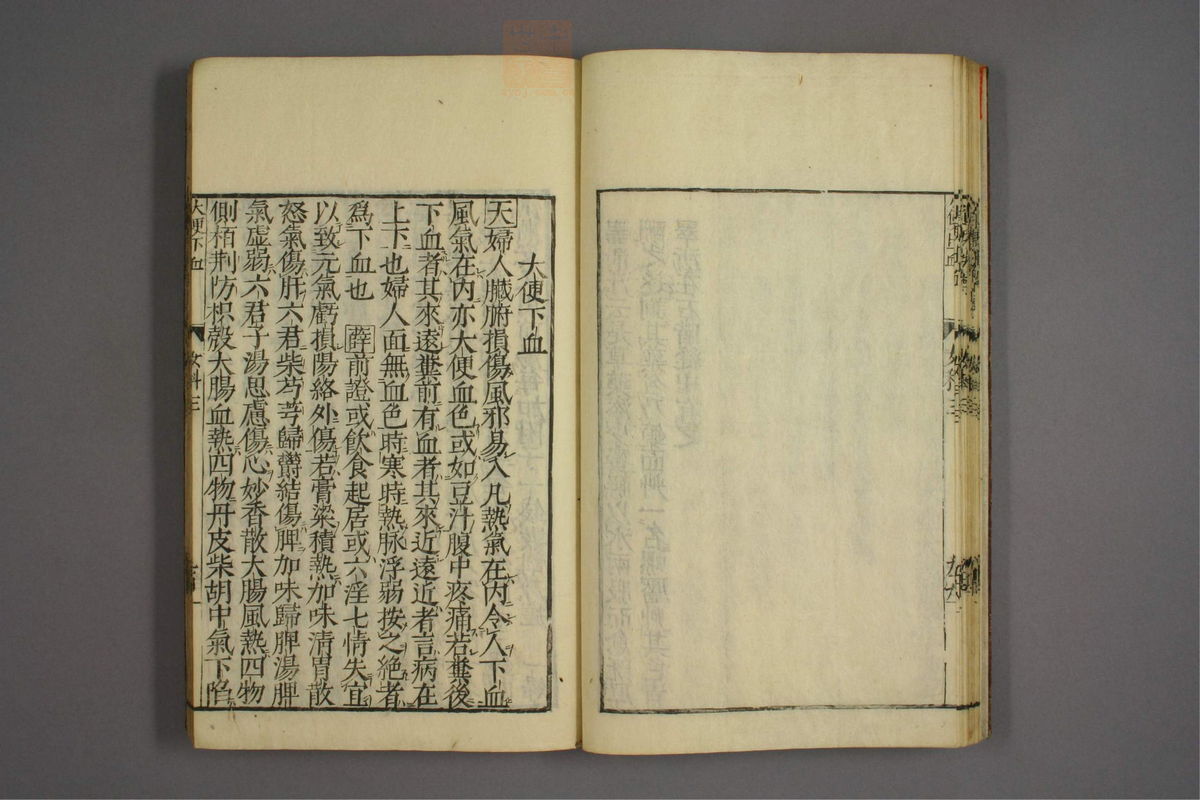 大便下血
大婦人臟腑損傷風邪易入凡熱氣在内令人下血
風氣在内亦大便血色或如豆汁腹中疼痛若糞後
下血者其來遠糞前有血者其來近遠近者言病在
上下也婦人面無血色時寒時熱脉浮弱按之絶者
爲下血也 薛前證或飲食起居或六淫七情失宜
以致元氣虧損陽絡外傷若膏粱積熱加味清胃散
怒氣傷肝六君柴芍芎歸欝結傷脾加味歸脾湯脾
氣虚弱六君子湯思慮傷心妙香散大腸風熱四物
側栢荆防枳殻大腸血熱四物丹皮柴胡中氣下陷
大便下血
女科三